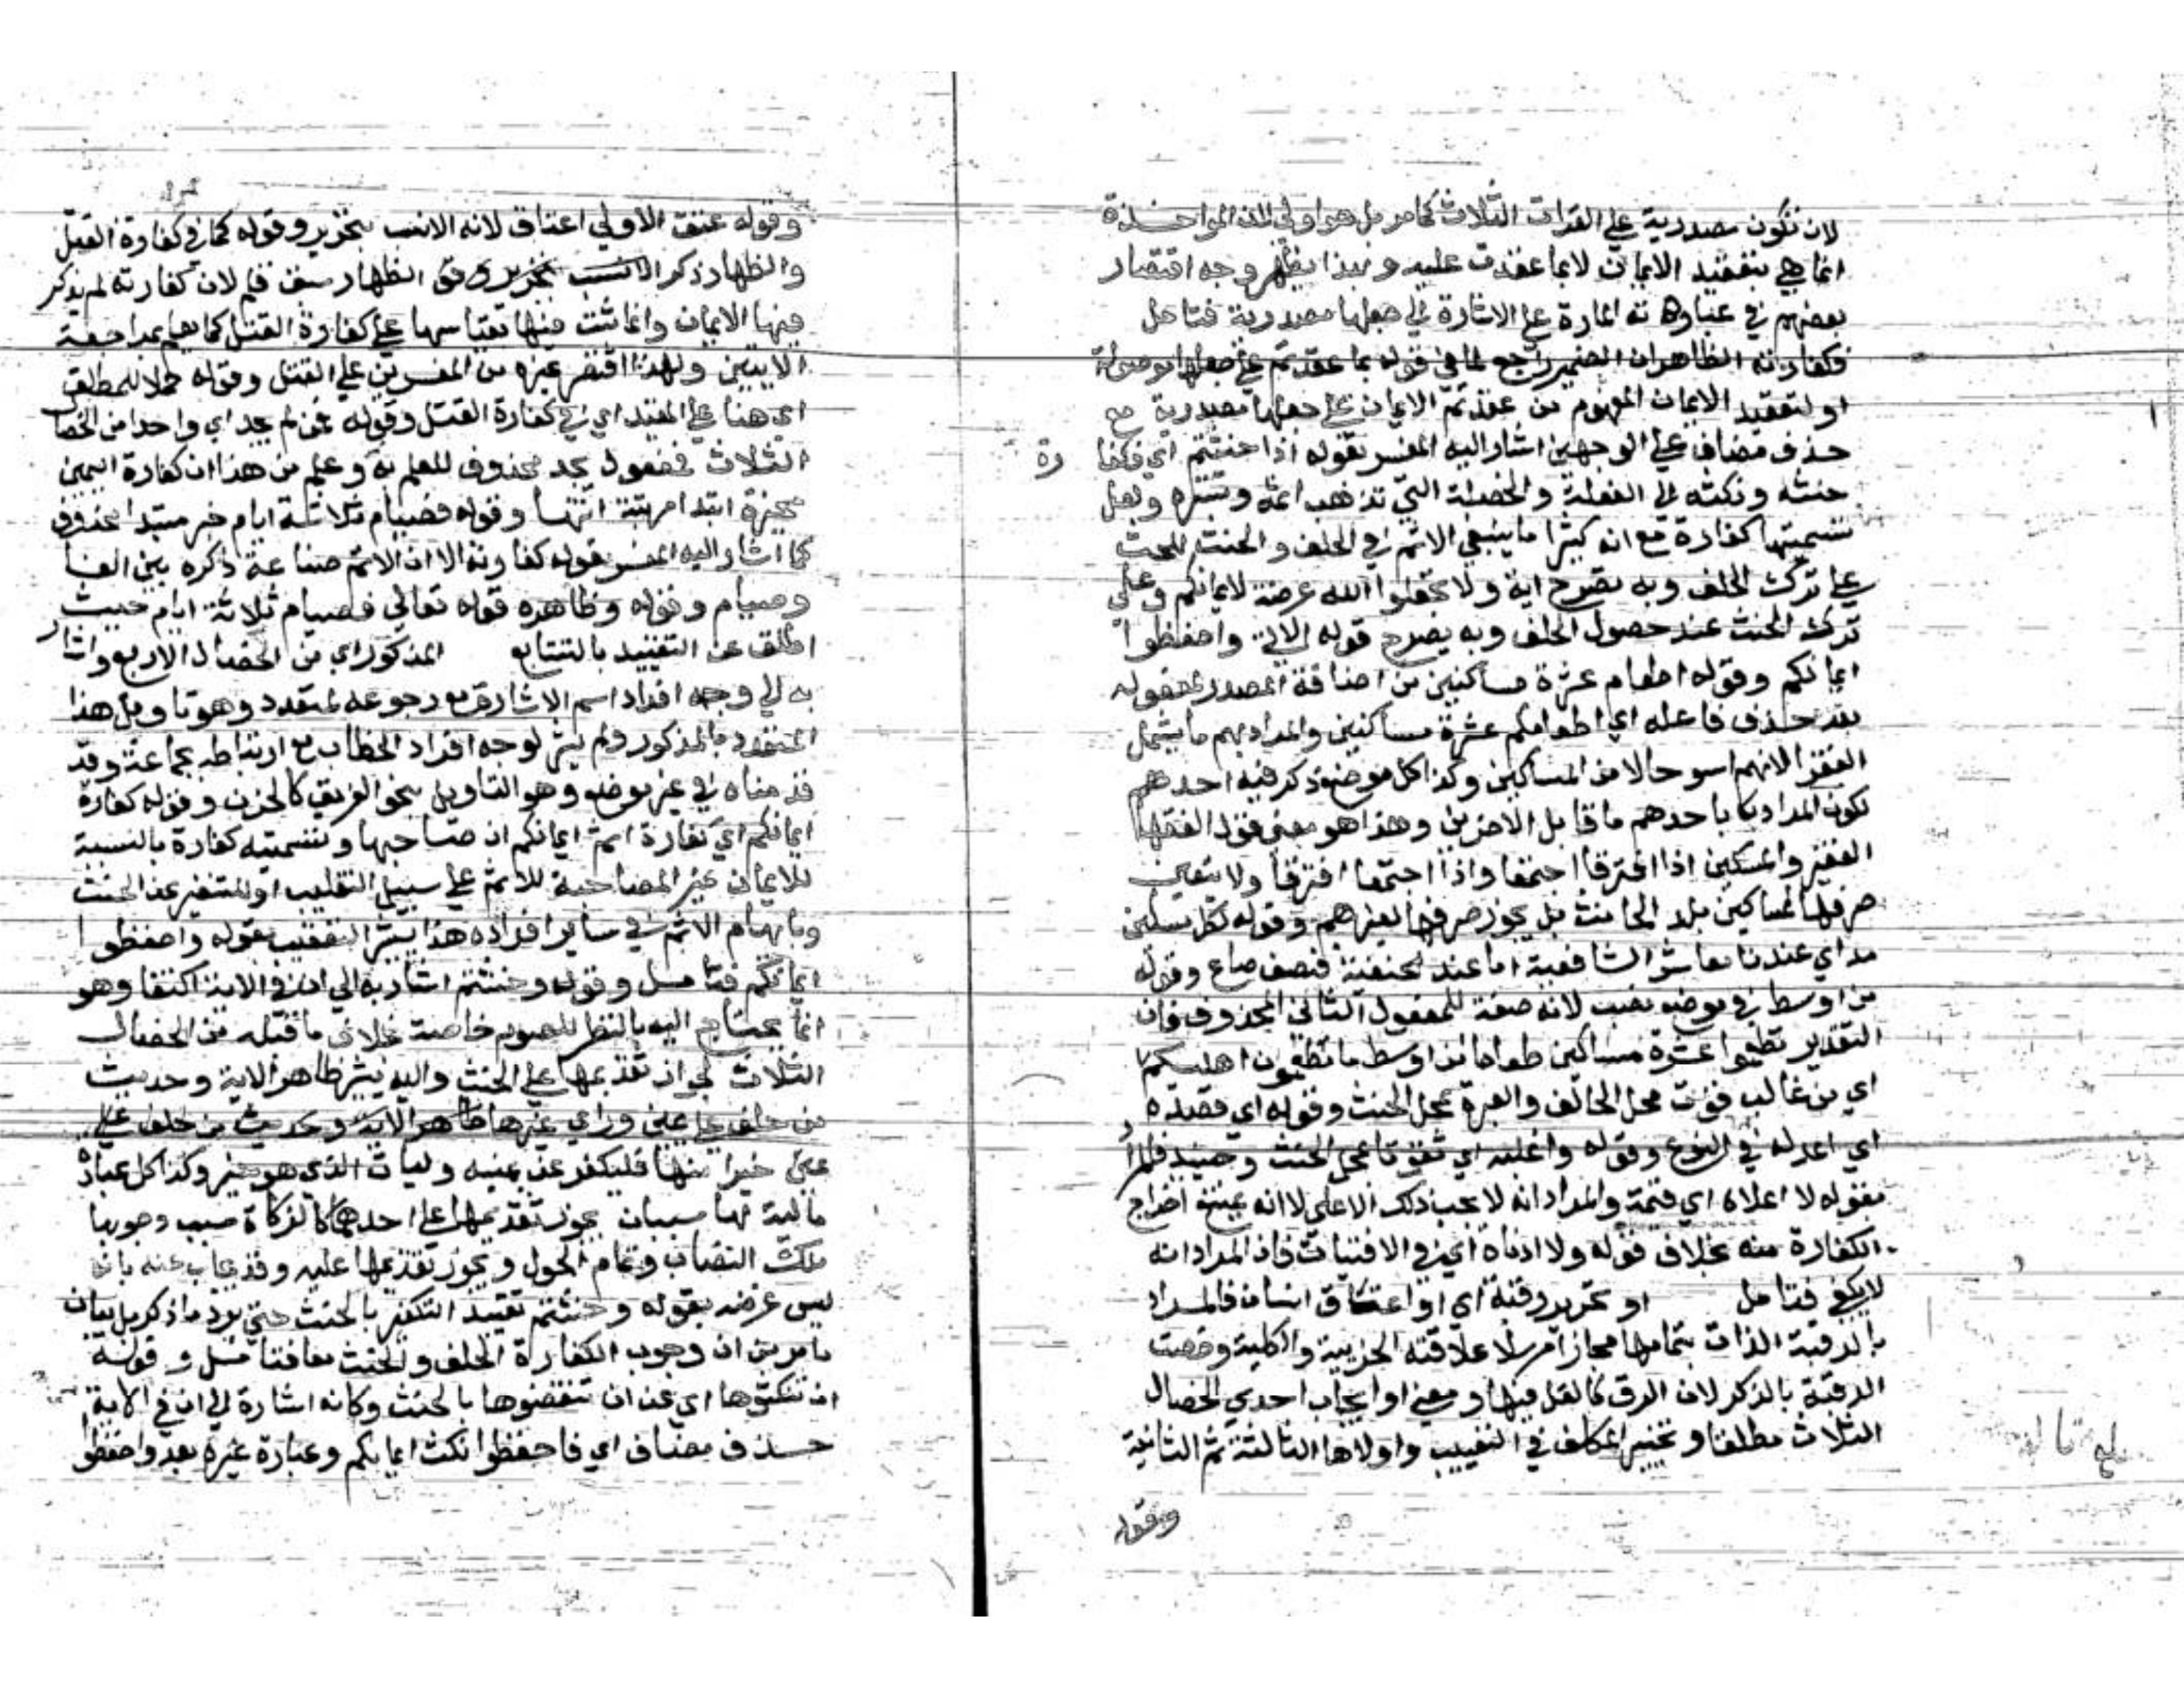 لان تكون مصدرية علي القرات الثلاث كما مر بل هو اولي لان المواخذة
انما هي بتعقيد الايمان لا بما عقدت عليه وبهذا يظهر وجه اقتصار
بعضهم في عباراته المارة علي الاشارة الي جعلها مصدرية فتامل
فكفارته الظاهر ان الضمير راجع لما في قوله بما عقدتم علي جعلها موصولة
او لتعقيد الايمان المفهوم من عقدتم الايمان علي جعلها مصدرية مع
حذف مضاف علي الوجهين اشار اليه المفسر بقوله اذا حنثتم اي فكفارة
حنثه ونكثه اي الفعلة والخصلة التي تذهب اثمه وتستره ولعل
تسميتها كفارة مع انه كثيرا ما ينبغي الاثم في الحلف والحنث للحث
علي ترك الحلف وبه يصرح اية ولا تجعلوا الله عرضة لايمانكم وعلي
ترك الحنث عند حصول الحلف وبه يصرح قوله الاتي واحفظوا
ايمانكم وقوله اطعام عشرة مساكين من اضافة المصدر لمفعوله
بعد حذف فاعله اي اطعامكم عشرة مساكين والمراد بهم ما يشمل
الفقرا لانهم اسو حالا من المساكين وكذا كل موضع ذكر فيه احدهم
تكون المراد باحدهم ما قابل الاخرين وهذا هو معني قول الفقها
الفقير والمسكين اذا افترقا اجتمعا واذا اجتمعا افترقا ولا يتعين
صرفها لمساكين بلد الحانث بل يجوز صرفها لغيرهم وقوله لكل مسكين
مد اي عندنا معاشر الشافعية اما عند الحنفية فنصف صاع وقوله
من اوسط في موضع نصب لانه صفة للمفعول الثاني المحذوف فان
التقدير تطعموا عشرة مساكين طعاما من اوسط ما تطعمون اهليكم
اي من غالب قوت محل الحالف والعبرة بمحل الحنث وقوله اي قصده
اي اعدله في النوع وقوله واغلبه اي تقوتا بمحل الحنث وحينئذ فالمراد
بقوله لا اعلاه اي قيمة والمراد انه لا يجب ذلك الاعلي لا انه يمتنع اخراج
الكفارة منه بخلاف قوله ولا ادناه اي في الاقتيات فان المراد انه
لا يكفي فتامل او تحرير رقبة اي او اعتاق انسان فالمراد
بالرقبة الذات بتمامها مجازا مرسلا علاقته الجزيية والكلية وخصت
الرقبة بالذكر لان الرق كالغل فيها ومعني او ايجاب احدي الخصال
الثلاث مطلقا وتخيير المكلف في التعيين واولاها الثالثة ثم الثانية
وقوله
وقوله عتق الاولي اعتاق لانه الانسب بتحرير وقوله كما في كفارة القتل
والظهار ذكر الظهار سبق قلم لان كفارته لم يذكر
فيها الايمان وانما ثبت فيها بقياسها علي كفارة القتل كما يعلم بمراجعة
الايتين ولهذا اقتصر غيره من المفسرين علي القتل وقوله حملا للمطلق
اي هنا علي المقيد اي في كفارة القتل وقوله فمن لم يجد اي واحدا من الخصال
الثلاث فمفعول يجد محذوف للعلم به وعلم من هذا ان كفارة اليمين
مخيرة ابتدا مرتبة انتها وقوله فصيام ثلاثة ايام خبر مبتدا محذوف
كما اشار اليه المفسر بقوله كفارته الا ان الاتم صناعة ذكره بين الفا
وصيام وقوله وظاهره قوله تعالي فصيام ثلاثة ايام حيث
اطلق عن التقييد بالتتابع المذكور اي من الخصال الاربع واشار
به الي وجه افراد اسم الاشارة مع رجوعه لمتعدد وهو تاويل هذا
المتعدد بالمذكور ولم يشر لوجه افراد الخطاب مع ارتباطه بجماعة وقد
قدمناه في غير موضع وهو التاويل بنحو الفريق كالحزب وقوله كفارة
ايمانكم اي كفارة اثم ايمانكم ان صاحبها وتسميته كفارة بالنسبة
للايمان غير المصاحبة للاثم علي سبيل التغليب او للتنفير عن الحنث
وبايهام الاثم في ساير افراده هذا يشير التعقيب بقوله واحفظوا
ايمانكم فتامل وقوله وحنثتم اشار به الي ان في الاية اكتفا وهو
انما يحتاج اليه بالنظر للصوم خاصة بخلاف ما قبله من الخصال
الثلاث لجواز تقديمها علي الحنث واليه يشير ظاهر الاية وحديث
من حلف علي يمين وراي غيرها ظاهر الاية وحديث من حلف علي
يمين خيرا منها فليكفر عن يمينه وليات الذي هو خير وكذا كل عبادة
مالية لها سببان يجوز تقديمها علي احدهما كالزكاة سبب وجوبها
ملك النصاب وتمام الحول ويجوز تقديمها عليه وقد يجاب عنه بانه
ليس غرضه بقوله وحنثتم تقييد التكفير بالحنث حتي يرد ما ذكر بل بيان
ما مر من ان وجوب الكفارة الحلف والحنث معا فتامل وقوله
ان تنكثوها اي عن ان تنقضوها بالحنث وكانه اشارة الي ان في الاية
حذف مضاف اي فاحفظوا نكث ايمانكم وعبارة غيره بعد واحفظوا